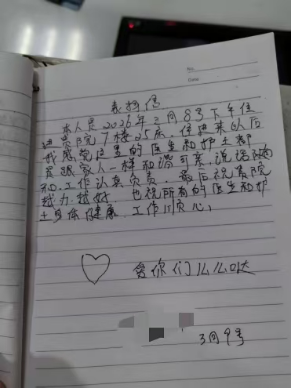 表扬信
本人员2026年2月8号下午住
进贵院7楼25床，住进来以后
我感觉这里的医生和护士都
跟家人一样和谐可亲，说话
和，工作认真负责，最后祝贵院
越力越好，也祝所有的医生和护
士身体健康 工作顺心，
会你们么么哒
3月9号